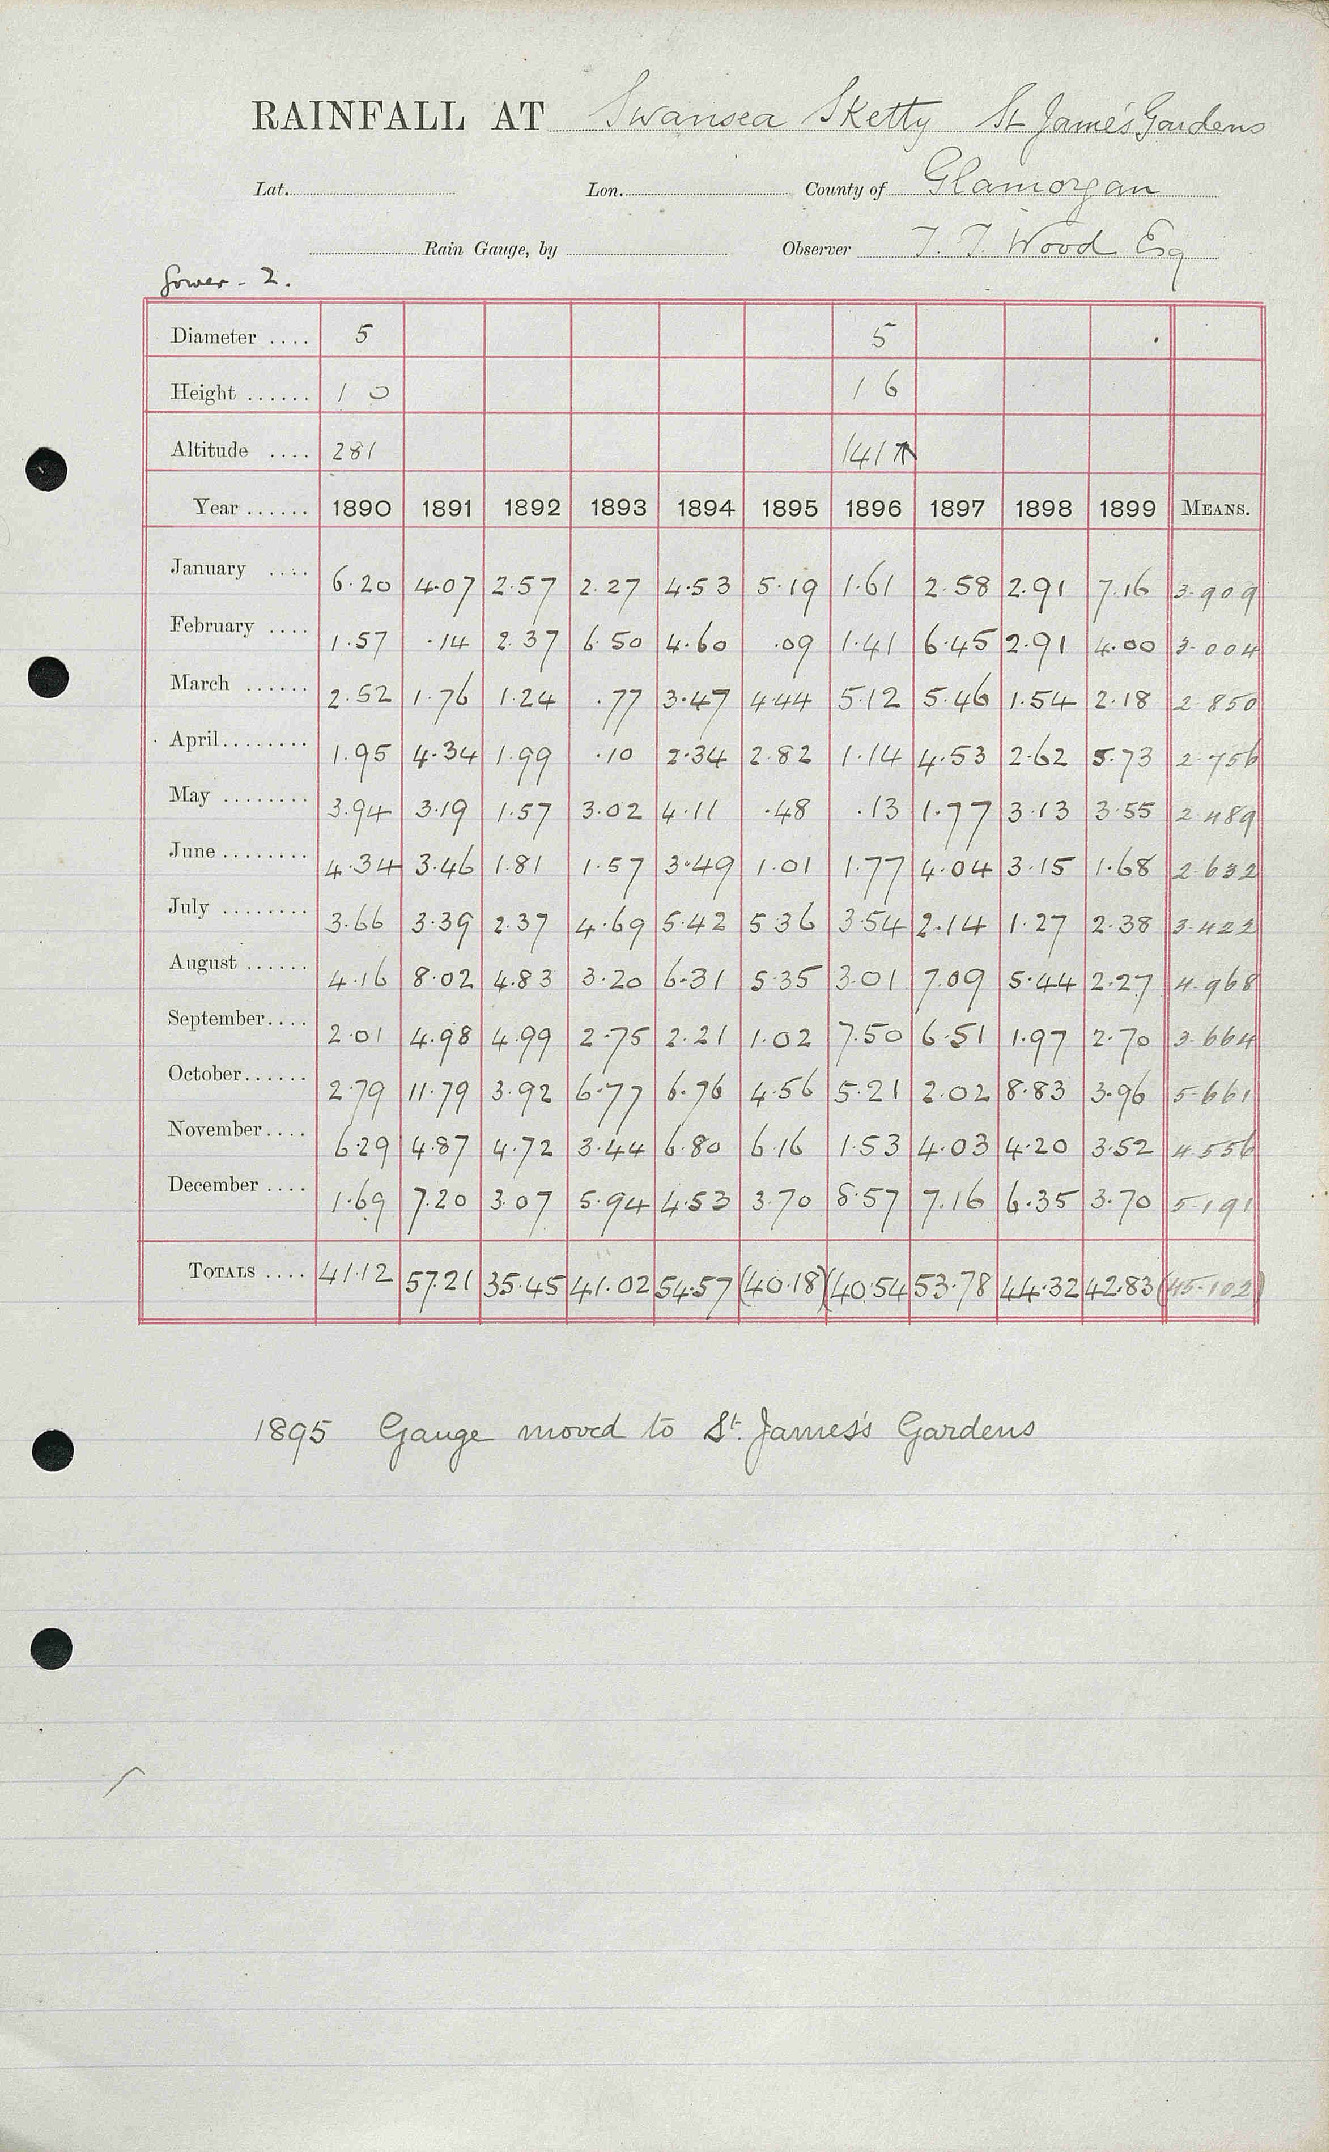 RAINFALL AT Swansea Sketty St James's Gardens
Lat. Lon. County of Glamorgan
Rain Gauge, by Observer T. T. Wood Esq
Gower - 2.
Diameter .... 5 5
Height ...... 1 0 1 6
Altitude .... 281 141
Year ...... 1890 1891 1892 1893 1894 1895 1896 1897 1898 1899 MEANS.
January .... 6.20 4.07 2.57 2.27 4.53 5.19 1.61 2.58 2.91 7.16 3.909
February .... 1.57 .14 2.37 6.50 4.60 .09 1.41 6.45 2.91 4.00 3.004
March ...... 2.52 1.76 1.24 .77 3.47 4.44 5.12 5.46 1.54 2.18 2.850
April........ 1.95 4.34 1.99 .10 2.34 2.82 1.14 4.53 2.62 5.73 2.756
May ........ 3.94 3.19 1.57 3.02 4.11 .48 .13 1.77 3.13 3.55 2.489
June........ 4.34 3.46 1.81 1.57 3.49 1.01 1.77 4.04 3.15 1.68 2.632
July ........ 3.66 3.39 2.37 4.69 5.42 5.36 3.54 2.14 1.27 2.38 3.422
August ...... 4.16 8.02 4.83 3.20 6.31 5.35 3.01 7.09 5.44 2.27 4.968
September.... 2.01 4.98 4.99 2.75 2.21 1.02 7.50 6.51 1.97 2.70 3.664
October...... 2.79 11.79 3.92 6.77 6.76 4.56 5.21 2.02 8.83 3.96 5.661
November.... 6.29 4.87 4.72 3.44 6.80 6.16 1.53 4.03 4.20 3.52 4.556
December .... 1.69 7.20 3.07 5.94 4.53 3.70 8.57 7.16 6.35 3.70 5.191
TOTALS .... 41.12 57.21 35.45 41.02 54.57 (40.18) (40.54 53.78 44.32 42.83 (45.102)
1895 Gauge moved to St. James's Gardens